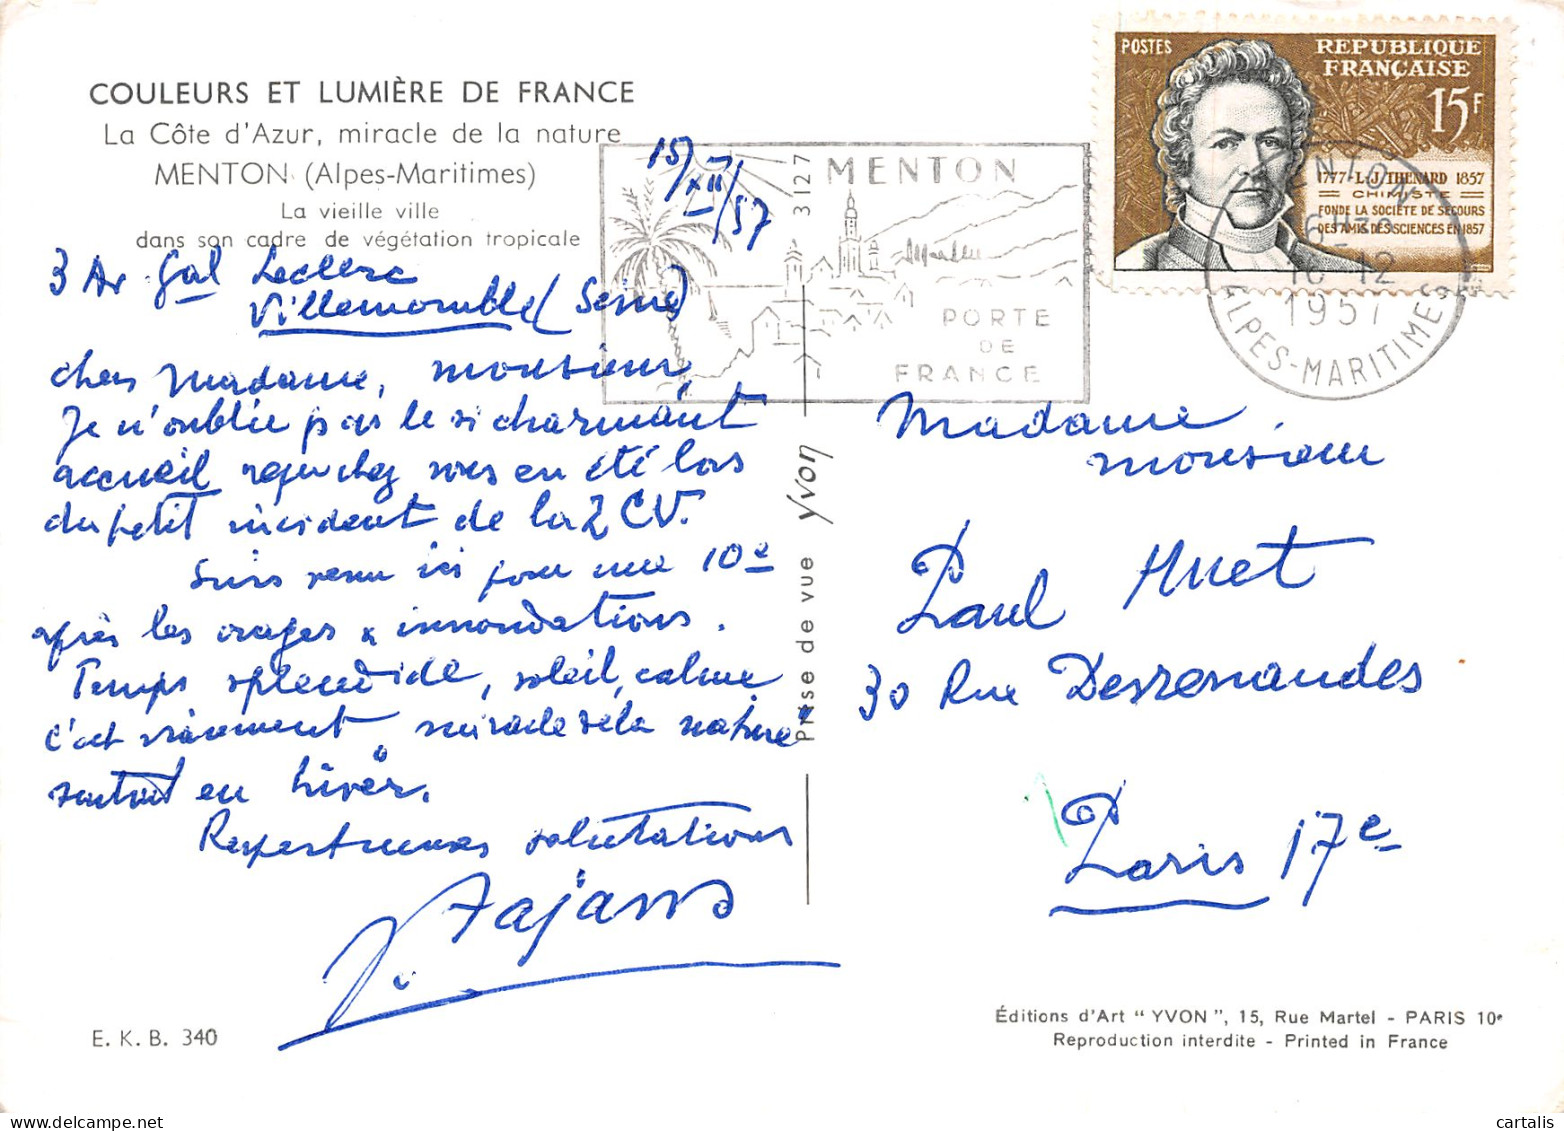 COULEURS ET LUMIÈRE DE FRANCE
La Côte d'Azur, miracle de la nature
MENTON (Alpes-Maritimes)
La vieille ville
dans son cadre de végétation tropicale
15/XII/57
3 Av Gal Leclerc
Villemomble (Seine)
chers Madame, monsieur,
Je n'oublie pas le si charmant
accueil reçu chez vous en été lors
du petit incident de la 2 CV.
Suis venu ici pour une 10e
après les orages & innondations.
Temps splendide, soleil, calme
c'est vraiment "miracle de la nature"
surtout en hiver.
Respectueuses salutations
E. K. B. 340
3127
MENTON
PORTE
DE
FRANCE
Prise de vue Yvon
POSTES
REPUBLIQUE
FRANÇAISE
15F
1777 - L.J. THENARD 1857
CHIMISTE
FONDE LA SOCIETE DE SECOURS
DES AMIS DES SCIENCES EN 1857
MENTON
16 - 12
1957
ALPES-MARITIMES
Madame
monsieur
Paul Huet
30 Rue Desrenaudes
Paris 17e
Éditions d'Art "YVON", 15, Rue Martel - PARIS 10e
Reproduction interdite - Printed in France
cartalis